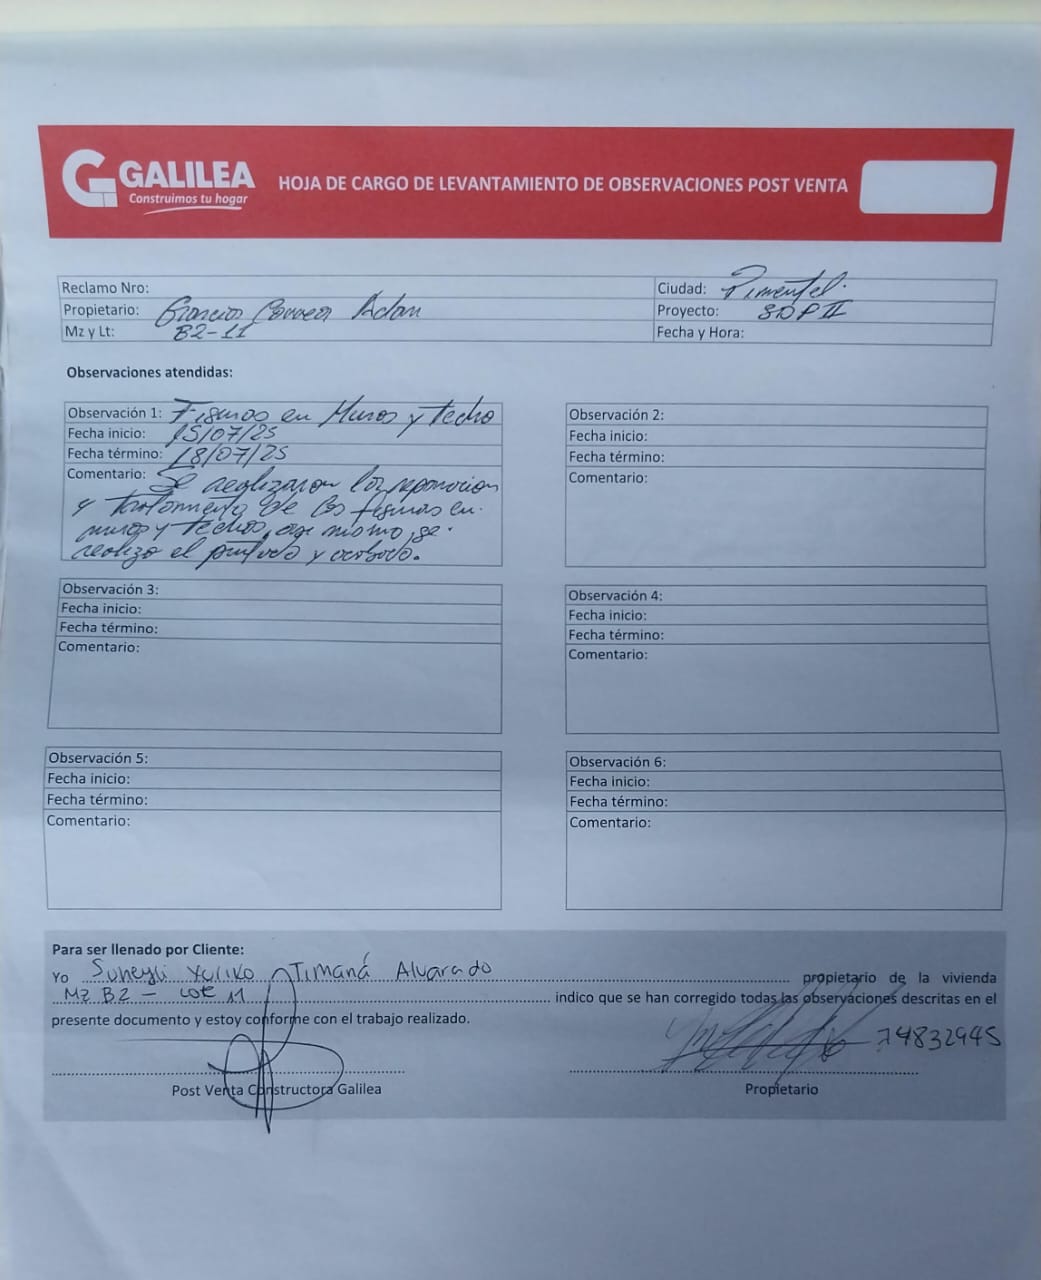 GALILEA
Construimos tu hogar
HOJA DE CARGO DE LEVANTAMIENTO DE OBSERVACIONES POST VENTA
Reclamo Nro:
Ciudad: Pimentel.
Propietario: Correa Adan
Proyecto: SDP II
Mz y Lt: B2-11
Fecha y Hora:
Observaciones atendidas:
Observación 1: Fisuras en Muros y techo
Fecha inicio: 15/07/25
Fecha término: 18/07/25
Comentario: Se realizaron la reparacion
y tratamiento de las fisuras en
muros y techos, asi mismo, se
realizo el pintado y acabado.
Observación 2:
Fecha inicio:
Fecha término:
Comentario:
Observación 3:
Fecha inicio:
Fecha término:
Comentario:
Observación 4:
Fecha inicio:
Fecha término:
Comentario:
Observación 5:
Fecha inicio:
Fecha término:
Comentario:
Observación 6:
Fecha inicio:
Fecha término:
Comentario:
Para ser llenado por Cliente:
Yo Suheyli Yuliko Timaná Alvarado propietario de la vivienda
Mz B2 - Lote 11 indico que se han corregido todas las observaciones descritas en el
presente documento y estoy conforme con el trabajo realizado.
74832945
Post Venta Constructora Galilea
Propietario